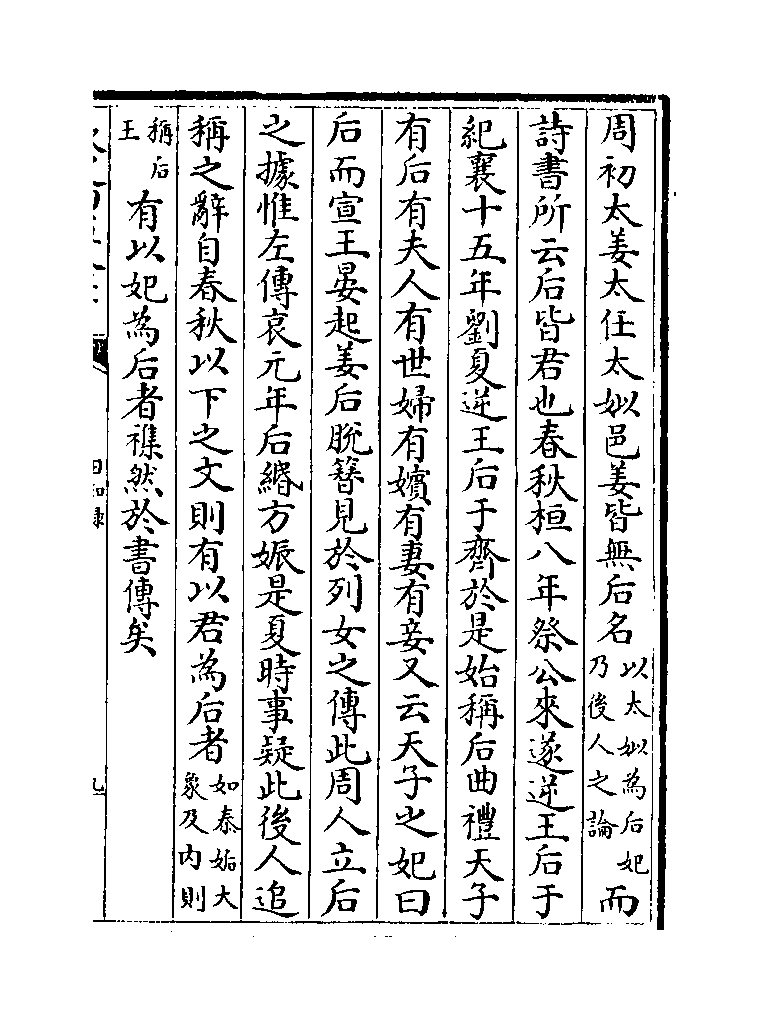 周初太姜太任太姒邑姜皆無后名以太姒為后妃乃後人之論而
詩書所云后皆君也春秋桓八年祭公來遂逆王后于
紀襄十五年劉夏逆王后于齊於是始稱后曲禮天子
有后有夫人有世婦有嬪有妻有妾又云天子之妃曰
后而宣王晏起姜后脫簪見於列女之傳此周人立后
之據惟左傳哀元年后緡方娠是夏時事疑此後人追
稱之辭自春秋以下之文則有以君為后者如泰姤大象及内則
稱后王有以妃為后者襍然於書傳矣
日知録
九